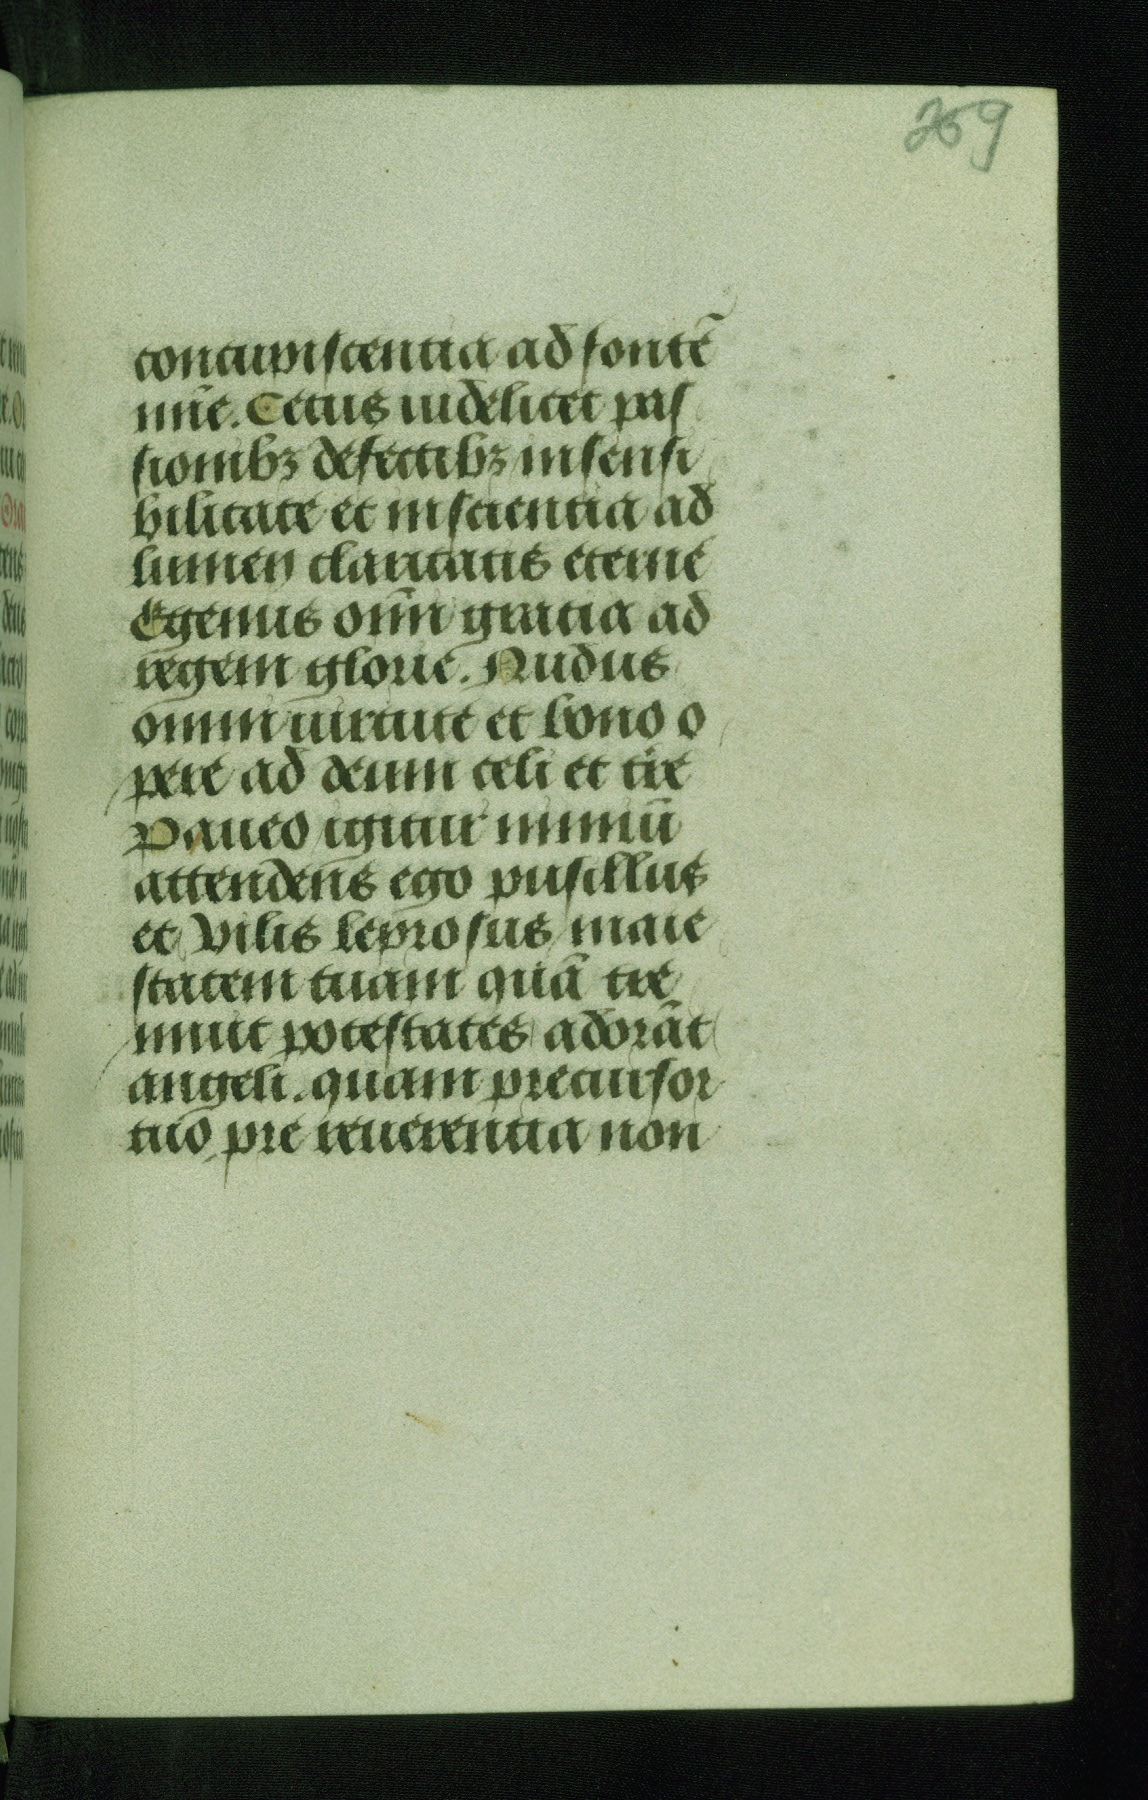 269
concupiscentia ad fontē
mīe. Cecus uidelicet pas
sionibꝫ defectibꝫ insensi
bilitate et inscientia ad
lumen claritatis eterne
Egenus om̄i gratia ad
regem glorie. Nudus
omni uirtute et bono o
pere ad deum celi et tr̄e
Paueo igitur nimiū
attendens ego pusillus
et vilis leprosus maie
statem tuam quā tre
munt potestates adorāt
angeli. quam precursor
tuo pre reuerentia non